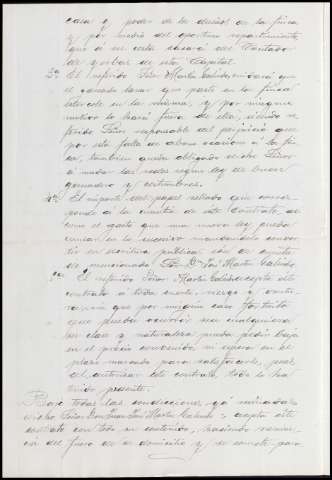 casa y poder de la dueña de la finca
y por medio del oportuno repartimiento
que á su costa sacará del Contador
de yerbas de esta Capital.
3ª El referido Señor Martin Cabido, cuidará que
el ganado lanar que paste en la finca
lo en la misma, y por ningun
motivo lo hará fuera de ella, siendo re-
ferido Señor responsable del perjuicio que
por esta falta de abono ocasione á la fin-
ca, tambien queda obligado dicho Señor
á mudar las redes segun ley de buen
ganadero y costumbres.
4ª El importe del papel sellado que corres-
ponde á la cuantia de este Contrato, asi
como el gasto que una nueva ley pueda
causar en lo sucesivo mandandole conver-
tir en escritura pública son de cuenta
de mencionado Dn José Martin Cabido
5ª El referido Señor Martin Cabido acepta este
contrato á toda suerte, riesgo y ventu-
ra, sin que por ningun caso fortuito
que pueda ocurrir sea cualquiera
su clase y naturaleza pueda pedir baja
en el precio convenido ni espera en el
plazo marcado para satisfacerle, pues
al autorizar este contrato, todo lo ha
tenido presente.
Bajo todas las condiciones ya indicadas
dicho Señor Don Juan José Martin Cabido, acepta este
contrato con todo su contenido, haciendo renun-
cia del fuero de su domicilio y se somete para